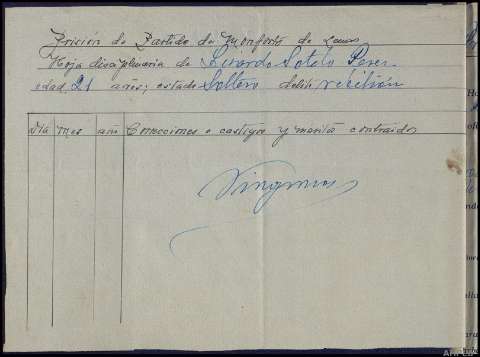 Prisión de Partido de Monforte de Lemos
Hoja disciplinaria de Licardo Sotelo Perez
edad 21 años; estado Soltero delito rebelión
Día Mes año Correcciones o castigos y meritos contraidos
Ningunos